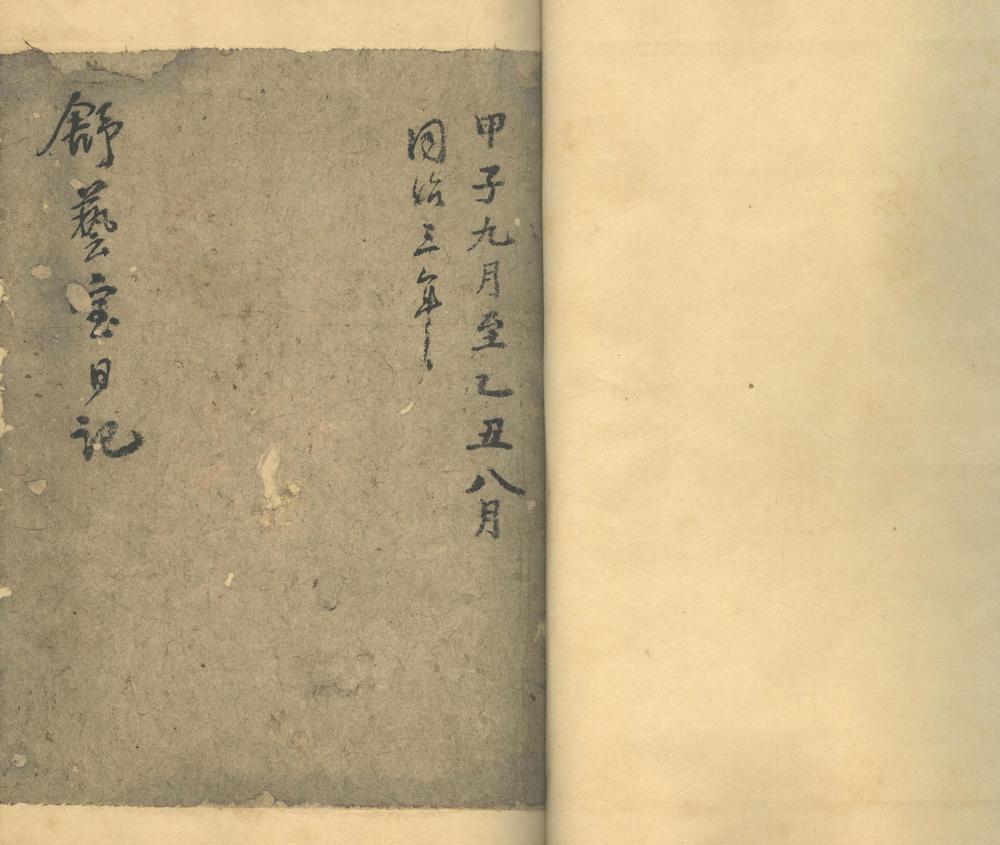 甲子九月至乙丑八月
同治三年
舒藝室日記